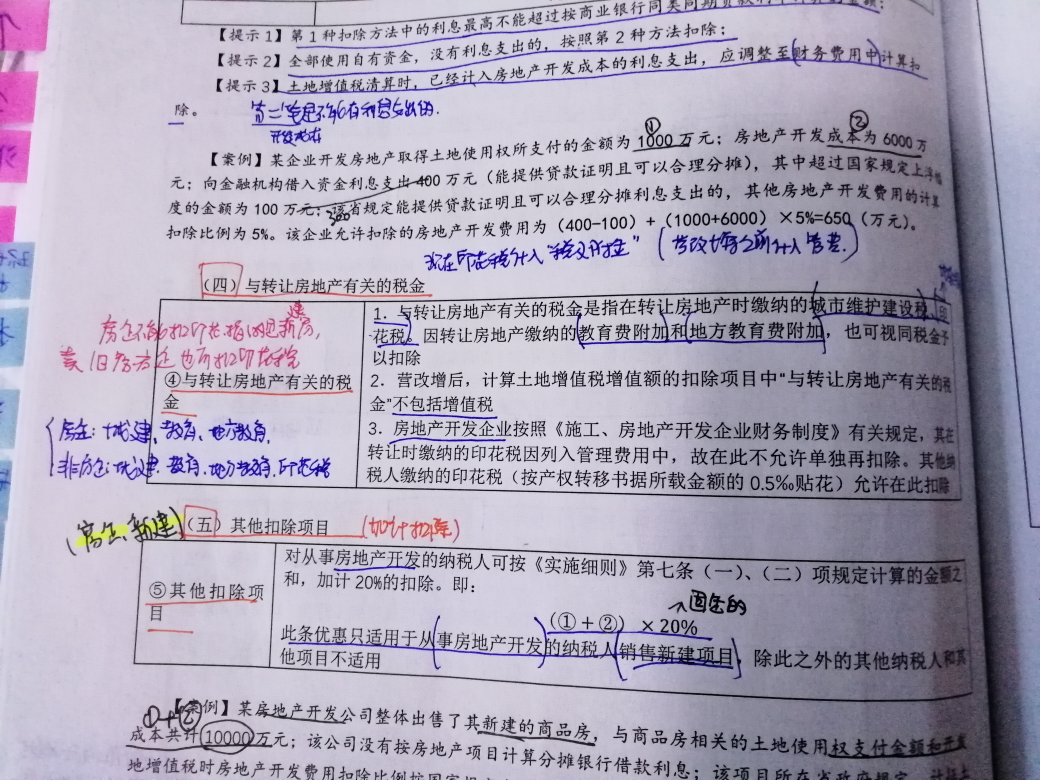 【提示1】第1种扣除方法中的利息最高不能超过按商业银行同类同期贷款利率计算的金额;
【提示2】全部使用自有资金，没有利息支出的，按照第2种方法扣除;
【提示3】土地增值税清算时，已经计入房地产开发成本的利息支出，应调整至财务费用中计算扣
除。
开发成本
① ②
【案例】某企业开发房地产取得土地使用权所支付的金额为1000万元；房地产开发成本为6000万
元；向金融机构借入资金利息支出400万元（能提供贷款证明且可以合理分摊），其中超过国家规定上浮幅
度的金额为100万元；该省规定能提供贷款证明且可以合理分摊利息支出的，其他房地产开发费用的计算
300
扣除比例为5%。该企业允许扣除的房地产开发费用为（400-100）+（1000+6000）×5%=650（万元）。
现在印花税计入“税金及附加”（营改增之前计入管费）
（四）与转让房地产有关的税金
房企不能扣印花税的是新建房，
卖旧房方是也可扣印花税
④与转让房地产有关的税
金
房企：城建、教育、地方教育.
非房企：城建、教育、地方教育、印花税
1. 与转让房地产有关的税金是指在转让房地产时缴纳的城市维护建设税、印
花税。因转让房地产缴纳的教育费附加和地方教育费附加，也可视同税金予
以扣除
2. 营改增后，计算土地增值税增值额的扣除项目中“与转让房地产有关的税
金”不包括增值税
3. 房地产开发企业按照《施工、房地产开发企业财务制度》有关规定，其在
转让时缴纳的印花税因列入管理费用中，故在此不允许单独再扣除。其他纳
税人缴纳的印花税（按产权转移书据所载金额的0.5‰贴花）允许在此扣除
（房企、新建）（五）其他扣除项目（加计扣除）
⑤其他扣除项
目
对从事房地产开发的纳税人可按《实施细则》第七条（一）、（二）项规定计算的金额之
和，加计20%的扣除。即：
（①＋②）×20%
此条优惠只适用于从事房地产开发的纳税人销售新建项目，除此之外的其他纳税人和其
他项目不适用
【案例】某房地产开发公司整体出售了其新建的商品房，与商品房相关的土地使用权支付金额和开发
①+②
成本共计10000万元；该公司没有按房地产项目计算分摊银行借款利息；该项目所在省政府规定